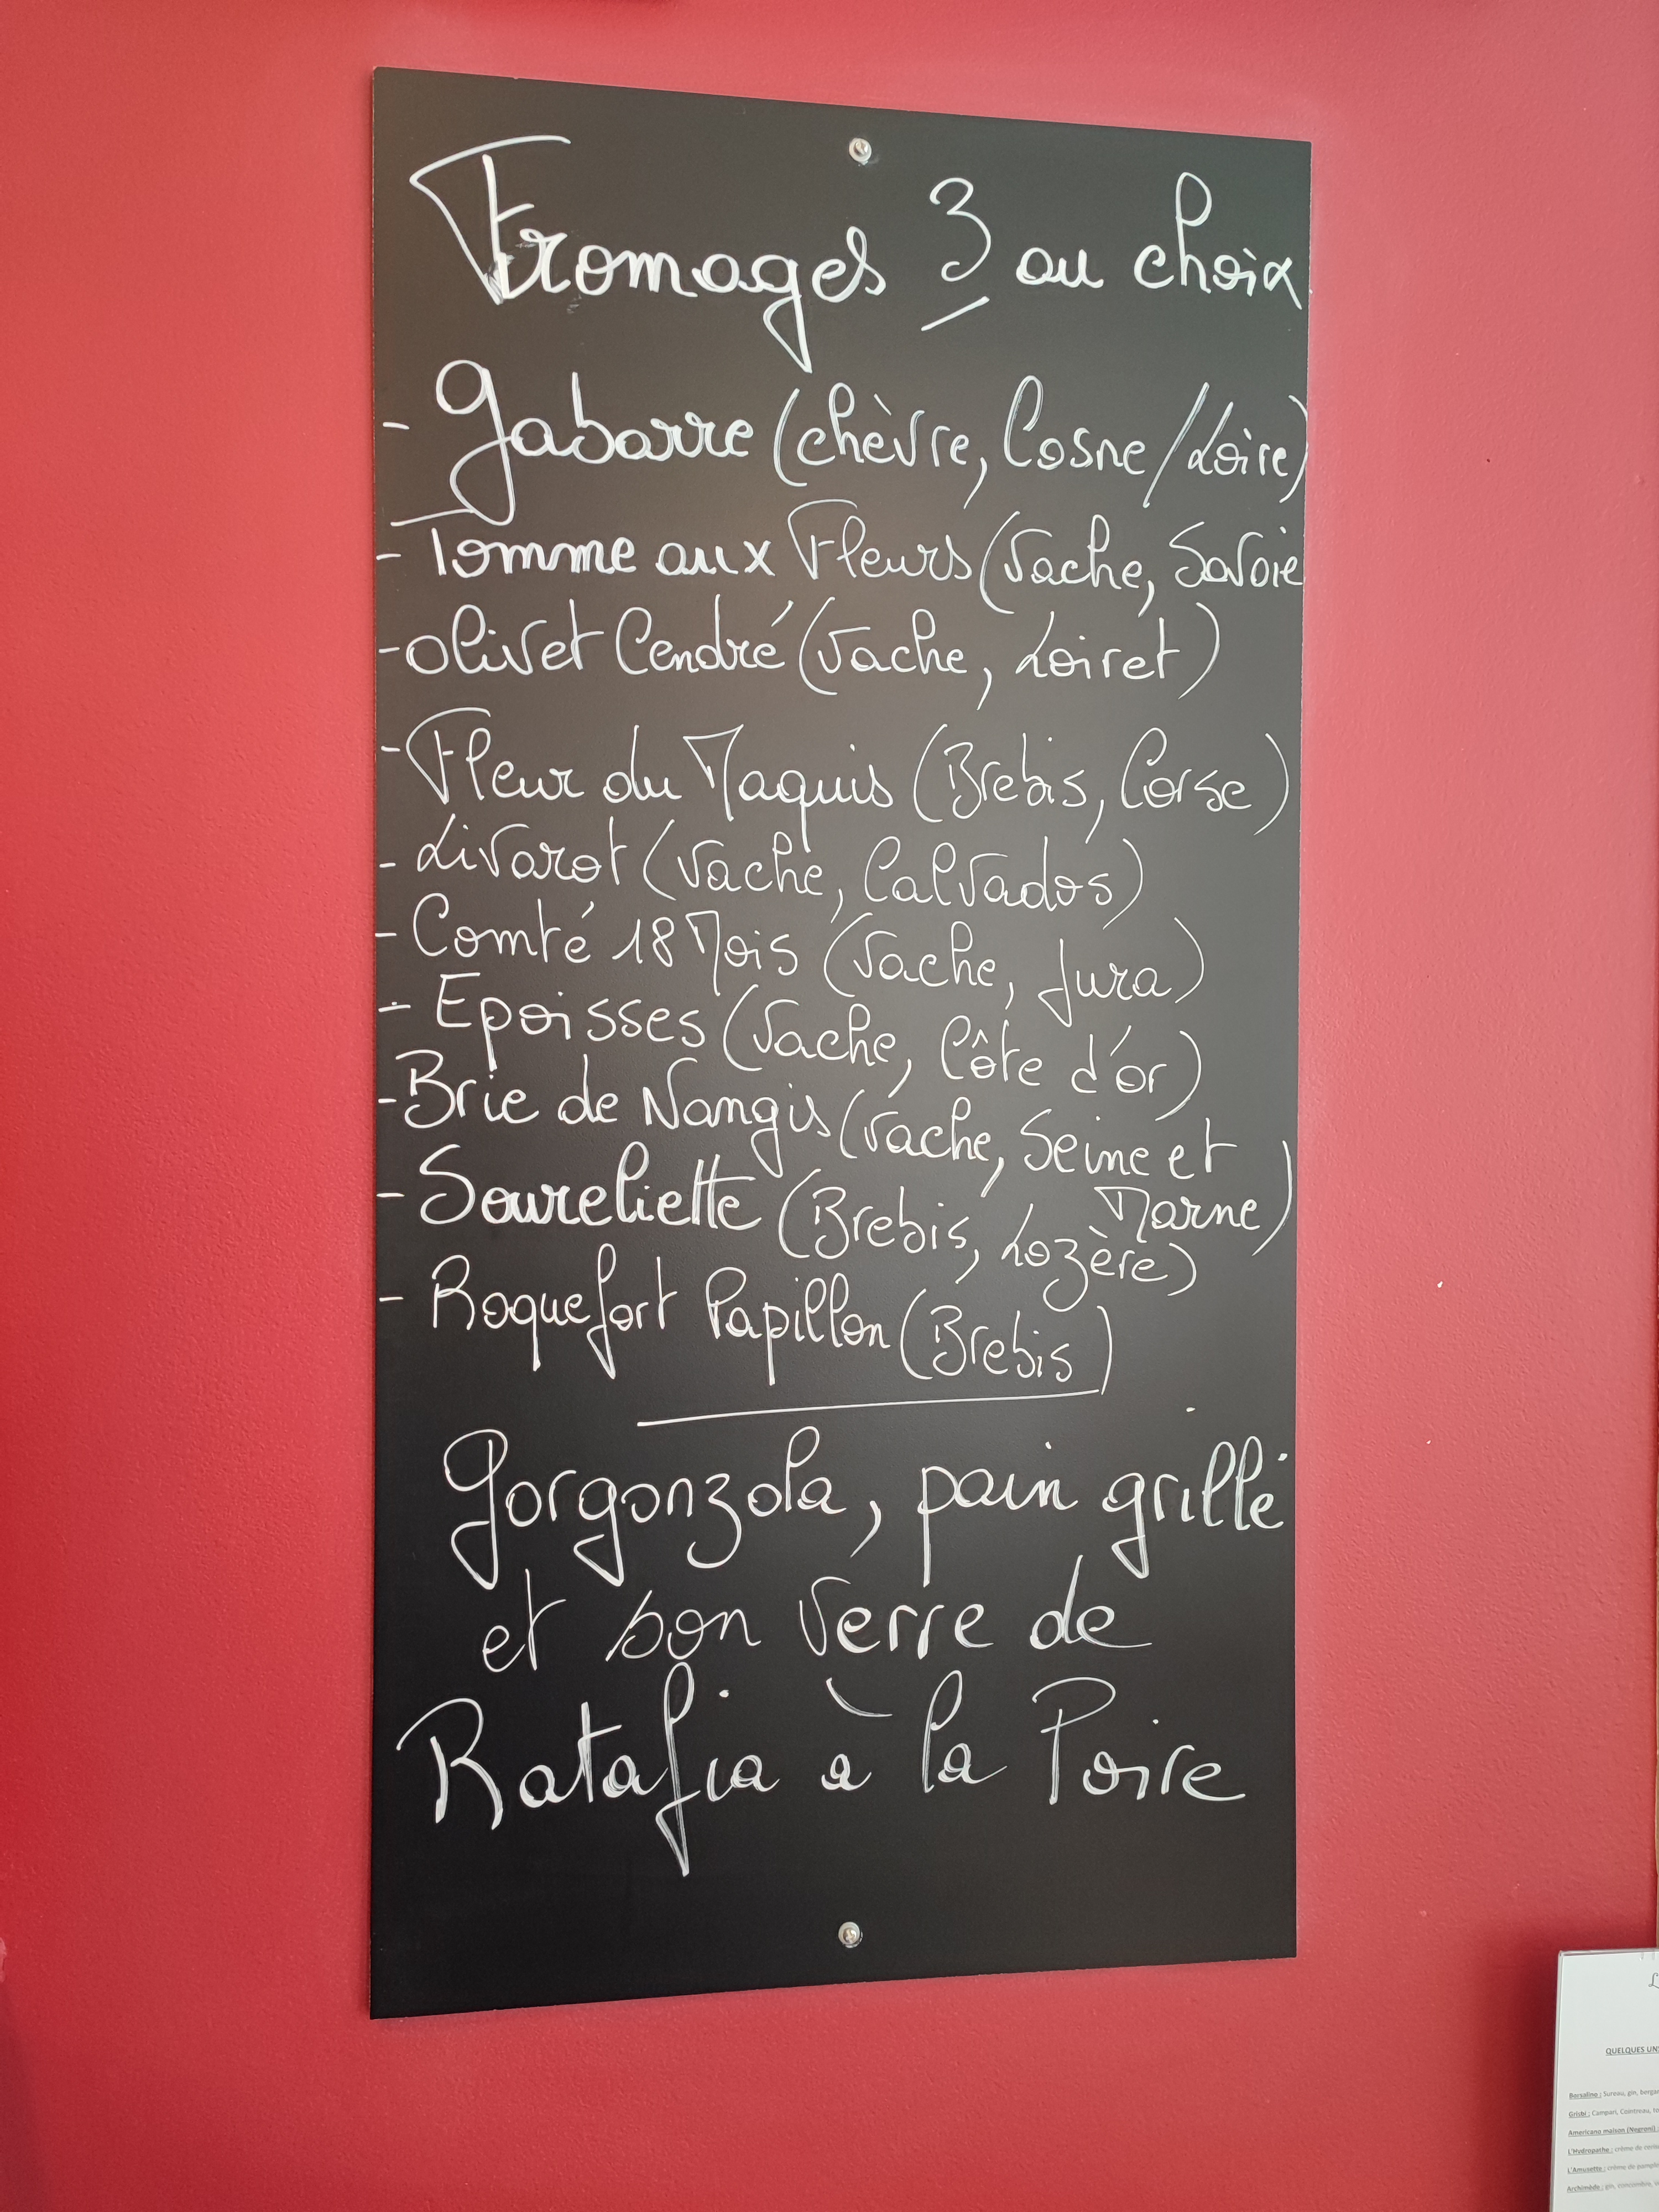 Fromages 3 au choix
- Gabarre (chèvre, Cosne/Loire)
- Tomme aux Fleurs (Vache, Savoie
- Olivet Cendré (Vache, Loiret)
- Fleur du Maquis (Brebis, Corse)
- Livarot (Vache, Calvados)
- Comté 18 Mois (Vache, Jura)
- Epoisses (Vache, Côte d'or)
- Brie de Nangis (Vache, Seine et
Marne)
- Soureliette (Brebis, Lozère)
- Roquefort Papillon (Brebis)
Gorgonzola, pain grillé
et son verre de
Ratafia à la Poire
QUELQUES UNS
Borsalino : Sureau, gin,
Grisbi : Campari, Cointreau,
Americano maison (Negroni) :
L'Hydropathe : crème de
L'Amusette : crème de
Archimède : gin, concombre,